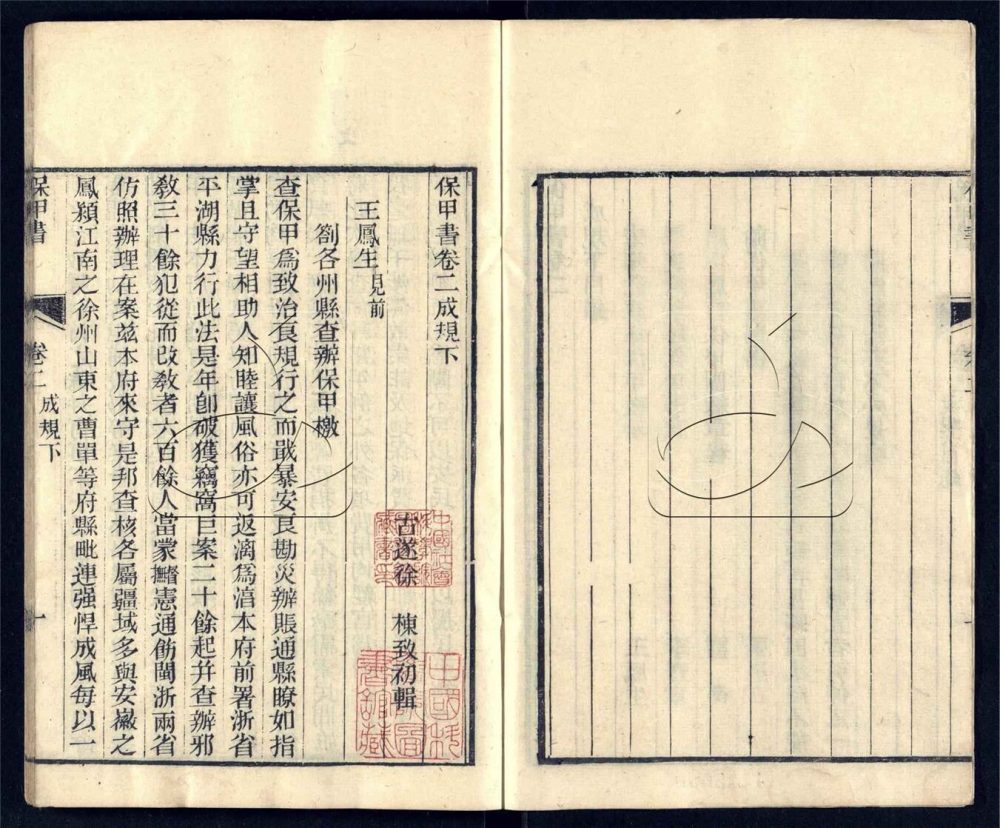 保甲書卷二成規下
古遂徐　棟致初輯
王鳳生見前
劄各州縣查辦保甲檄
查保甲爲致治良規行之而戢暴安良勘災辦賑通縣瞭如指
掌且守望相助人知睦讓風俗亦可返漓爲湻本府前署浙省
平湖縣力行此法是年卽破獲竊窩巨案二十餘起并查辦邪
敎三十餘犯從而改敎者六百餘人當蒙 憲通飭閩浙兩省
仿照辦理在案茲本府來守是邦查核各屬疆域多與安徽之
鳳潁江南之徐州山東之曹單等府縣毗連强悍成風每以一
保甲書
卷二
成規下
一